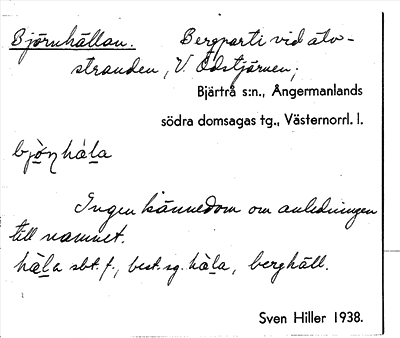 Björnhällan. Bergparti vid älv-
stranden, V. Ödstjärnen;
Bjärtrå s:n., Ångermanlands
södra domsagas tg., Västernorrl. l.
Ingen kännedom om anledningen
till namnet.
hä̀la sbt. f., best. sg. hä̀la, berghäll.
Sven Hiller 1938.